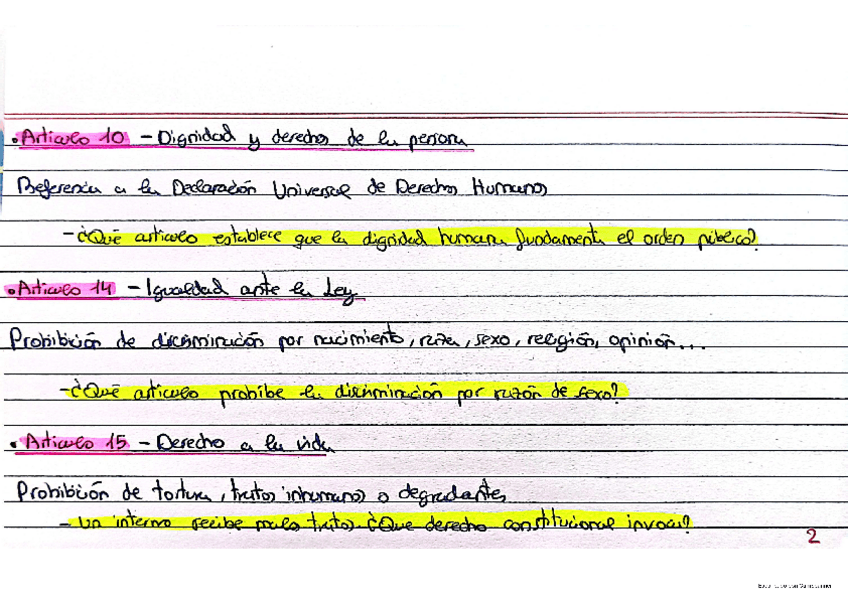 • Articulo 10 - Dignidad y derechos de la persona
Referencia a la Declaración Universal de Derechos Humanos
- ¿Qué articulo establece que la dignidad humana fundamenta el orden público?
• Articulo 14 - Igualdad ante la Ley
Prohibición de discriminación por nacimiento, raza, sexo, religión, opinión...
- ¿Qué articulo prohíbe la discriminación por razón de sexo?
• Articulo 15 - Derecho a la vida
Prohibición de tortura, tratos inhumanos o degradantes
- Un interno recibe malos tratos. ¿Que derecho constitucional invoca?
2